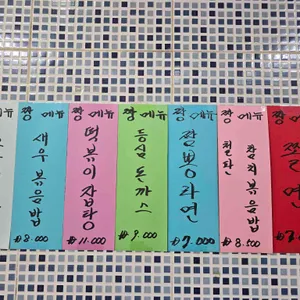 짱 메뉴
새우볶음밥
₩8.000
짱 메뉴
떡볶이잡탕
₩11.000
짱 메뉴
등심돈까스
₩9.000
짱 메뉴
짬뽕라면
₩7.000
짱 메뉴
철판
참치볶음밥
₩8.500
짱